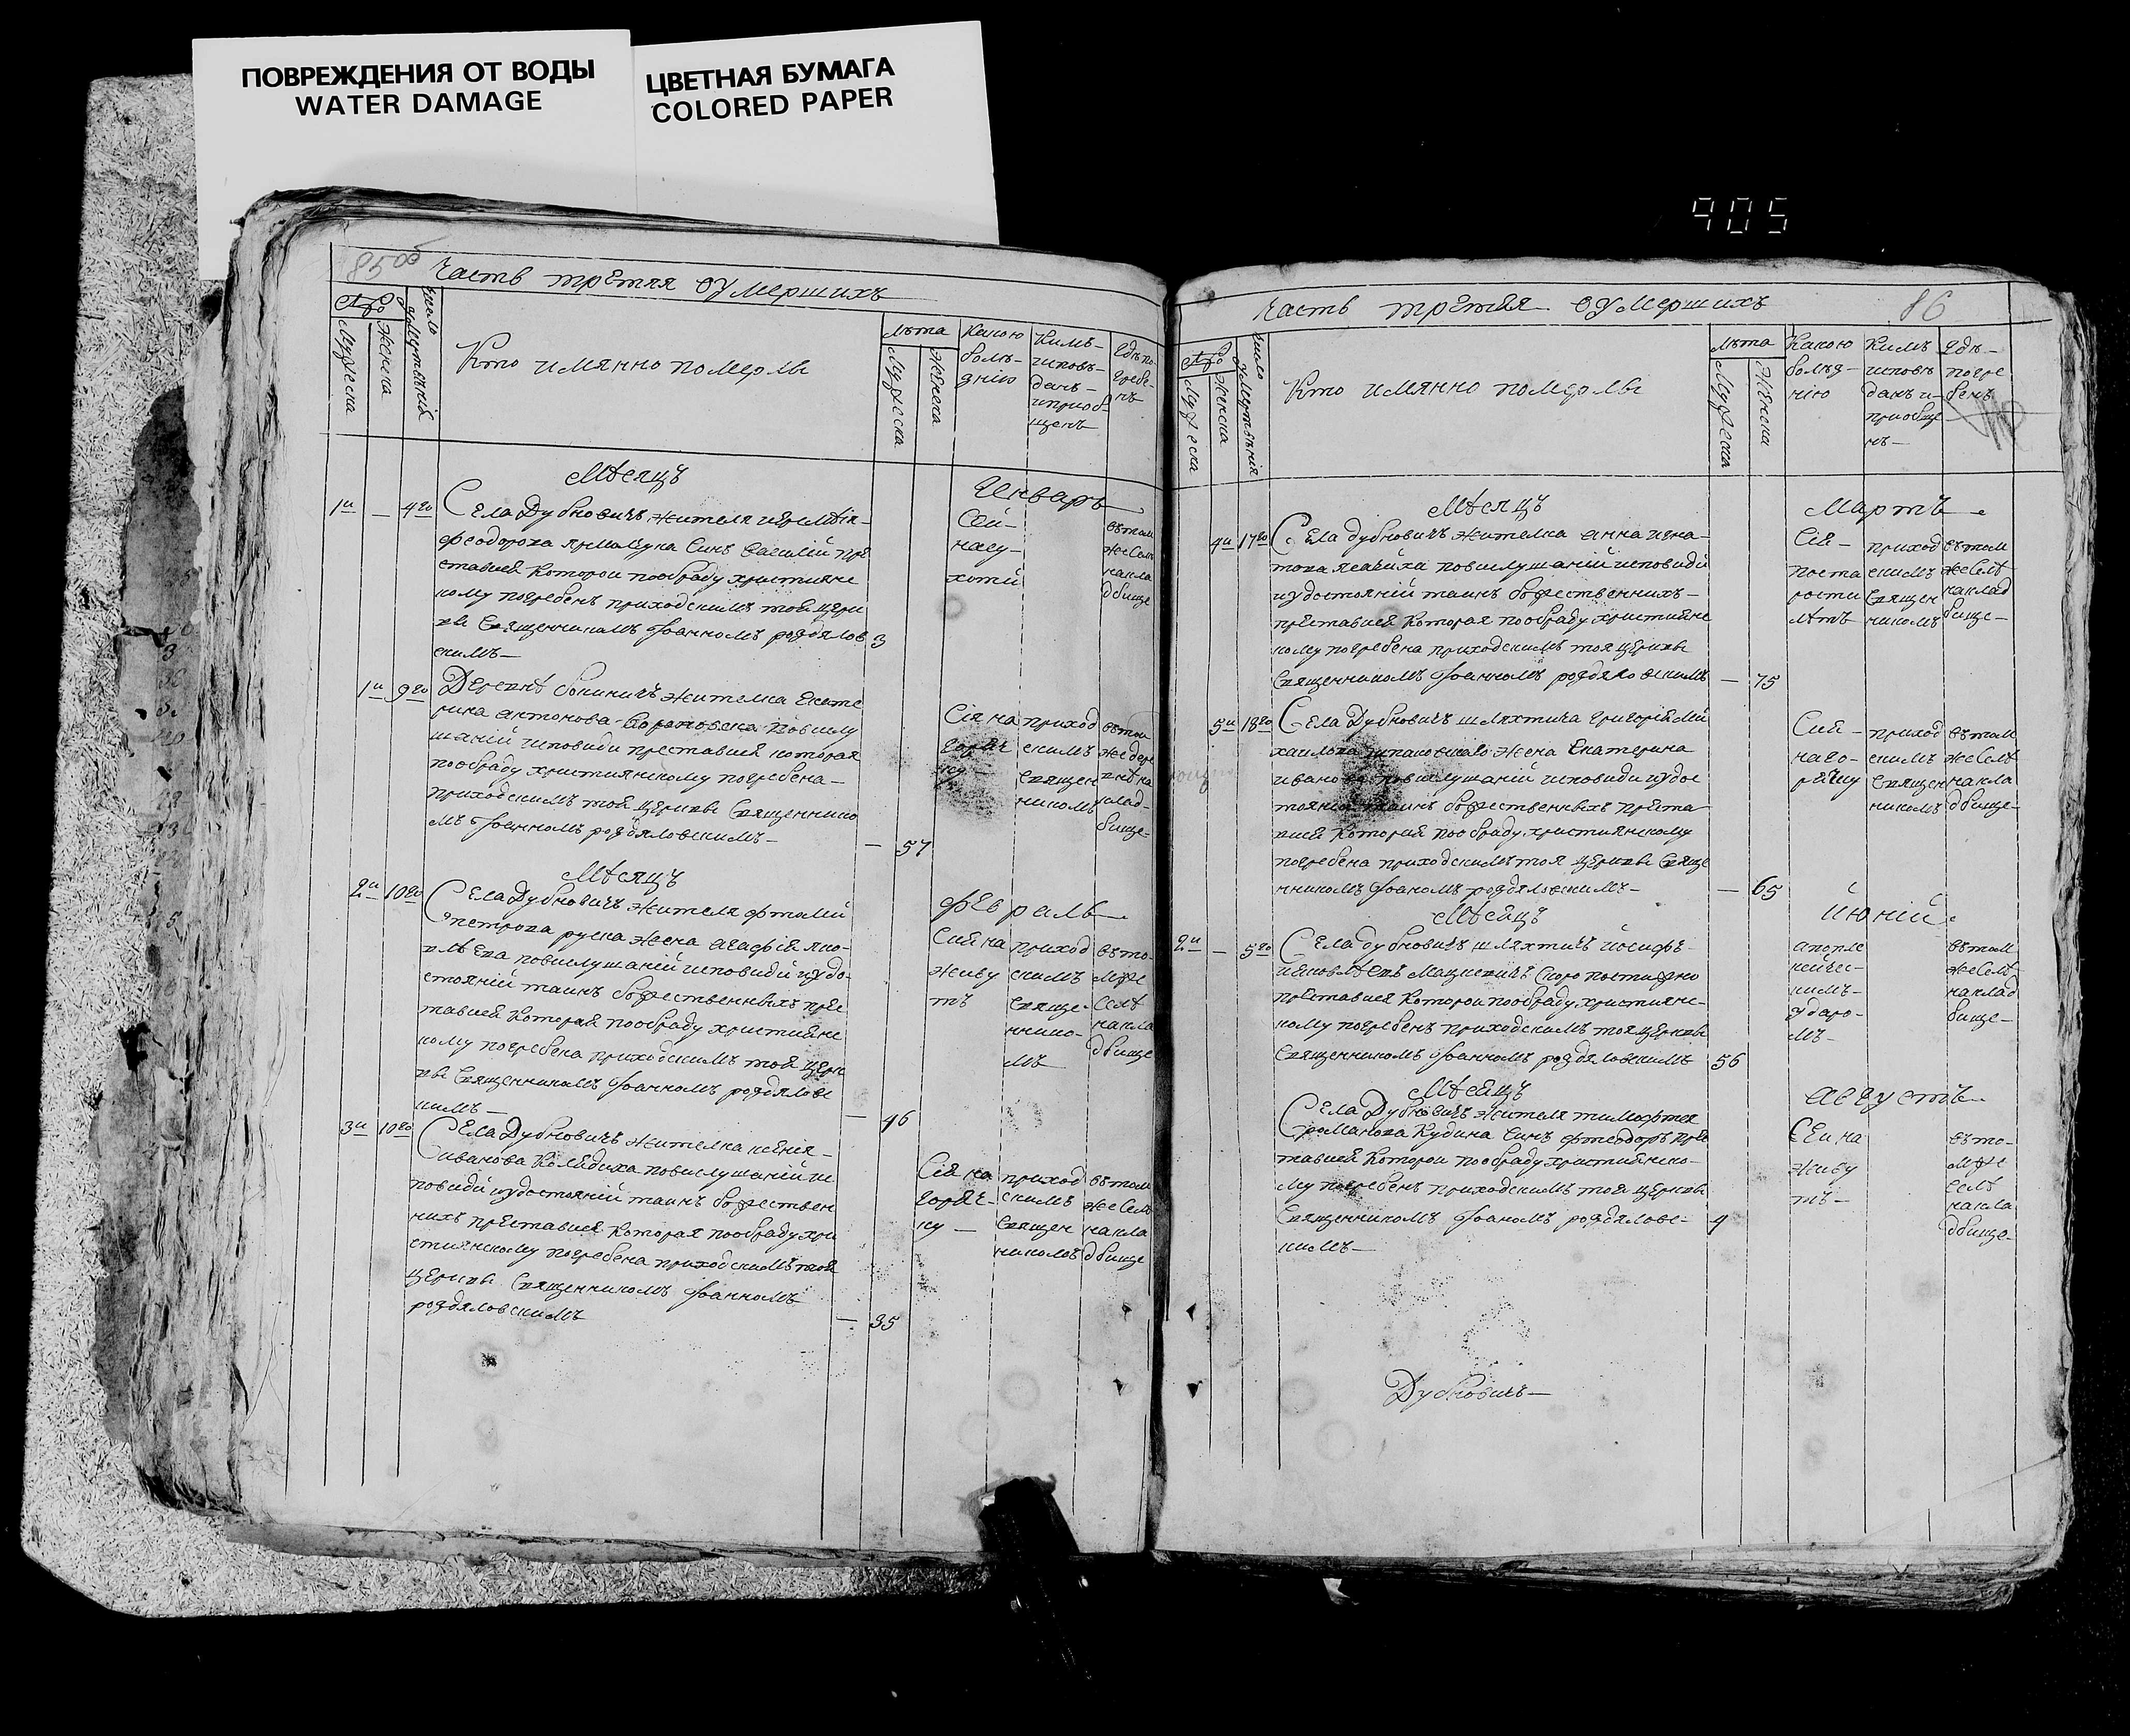 ПОВРЕЖДЕНИЯ ОТ ВОДЫ
WATER DAMAGE
ЦВЕТНАЯ БУМАГА
COLORED PAPER
905
85об
Часть третяя оумершихъ
Число умертвенiя
Мужеска
Женска
Кто имянно померлы
Лѣта
Мужеска
Женска
Какою
болѣ-
знiю
Кимъ-
исповѣ-
данъ-
иприоб-
щенъ
Гдѣ по-
гребе-
нъ
Мѣсяцъ
Январъ
1й — 4го
Села Дубновичъ жителя
феодорова синъ василiй пре
ставися которои пообряду християнс
кому погребенъ приходскимъ тоя церк
ви Священникомъ Иоанномъ роздялов
скимъ—
3
Сей-
насу-
хоти
вътом
жеселѣ
накла
дбище
1я 9го
Деревнѣ бокиничъ жителка Екате
рина антонова повислу
шанiй исповиди преставися которая
пообряду християнскому погребена—
приходскимъ тоя церкви Священнико
мъ Иоанномъ роздяловскимъ—
— 57
Сiя на
горяч
ку—
приход
скимъ
Священ
никомъ
втои
жедере
внѣ на
клад-
бище-
Мѣсяцъ
февраль
2я 10го
Села Дубновичъ жителя
петрова жена агафiя яко-
влева повислушанiй исповиди иудо-
стоянiй таинъ божественныхъ пре
тавися которая пообряду християнс
кому погребена приходскимъ тоя церк
ви Священникомъ Иоанномъ роздяловс
кимъ—
— 46
Сия на
живо
тъ
приход
скимъ
Свяще-
ннико-
мъ
въто-
мже
Селѣ
накла
дбище
3я 10го
Села Дубновичъ жителка ксенiя—
иванова Колядиха повислушанiй ис
повиди иудостоянiй таинъ божествен
нихъ преставися которая пообряду хри
стиянскому погребена приходскимъ тоя
церкви Священникомъ Иоанномъ
роздяловскимъ
— 35
Сiя на
горяч-
ку—
приход
скимъ
Священ
никомъ
вътом
жеселѣ
накла
дбище
Часть третяя оумершихъ
86
Число умертвенiя
Мужеска
Женска
Кто имянно померлы
Лѣта
Мужеска
Женски
Какою
болѣз-
нiю
Кимъ
исповѣ
данъ и-
приобще
нъ—
Гдѣ-
погре
бенъ
Мѣсяцъ
Мартъ
4я 17го
Села Дубновичъ жителка анна игна-
това повислушанiй исповиди
иудостоянiй таинъ божественнихъ—
преставися которая пообряду християнс
кому погребена приходскимъ тоя церкви
Священникомъ Иоанномъ роздяловскимъ
— 75
Сiя-
поста
рости
лѣтъ
приход
скимъ
Священ
никомъ
вътом
жеселѣ
наклад
бище—
5я 18го
Села Дубновичъ шляхтича григорiя ми
хаилова жена Екатерина
иванова повислушанiй исповиди иудос
тоянiй таинъ божественныхъ преста
вися которая пообряду християнскому
погребена приходскимъ тоя церкви Свяще
нникомъ Иоаномъ роздяловскимъ—
— 65
Сия-
наго-
рячку
приход
скимъ
Священ
никомъ
вътом
жеселѣ
накла
дбище-
Мѣсяцъ
Июнiй
2й — 5го
Села Дубновичъ шляхтичъ иосифъ-
Мацкевичъ скоропостижно
преставися которои пообряду християнс-
кому погребенъ приходскимъ тоя церкви
Священникомъ Иоанномъ роздяловскимъ
56
апопле
кейчес-
кимъ-
ударо-
мъ-
вътом
жеселѣ
наклад
бище-
Мѣсяцъ
Августъ
Села Дубновичъ жителя тимофтея
романова Кудина синъ фтеодоръ прес
тавися которои пообряду християнско-
му погребенъ приходскимъ тоя церкви
Священникомъ Иоаномъ роздяловс-
кимъ—
4
Сеи на
живо
тъ—
въто-
мже
селѣ
накла
дбище-
Дубновичъ—